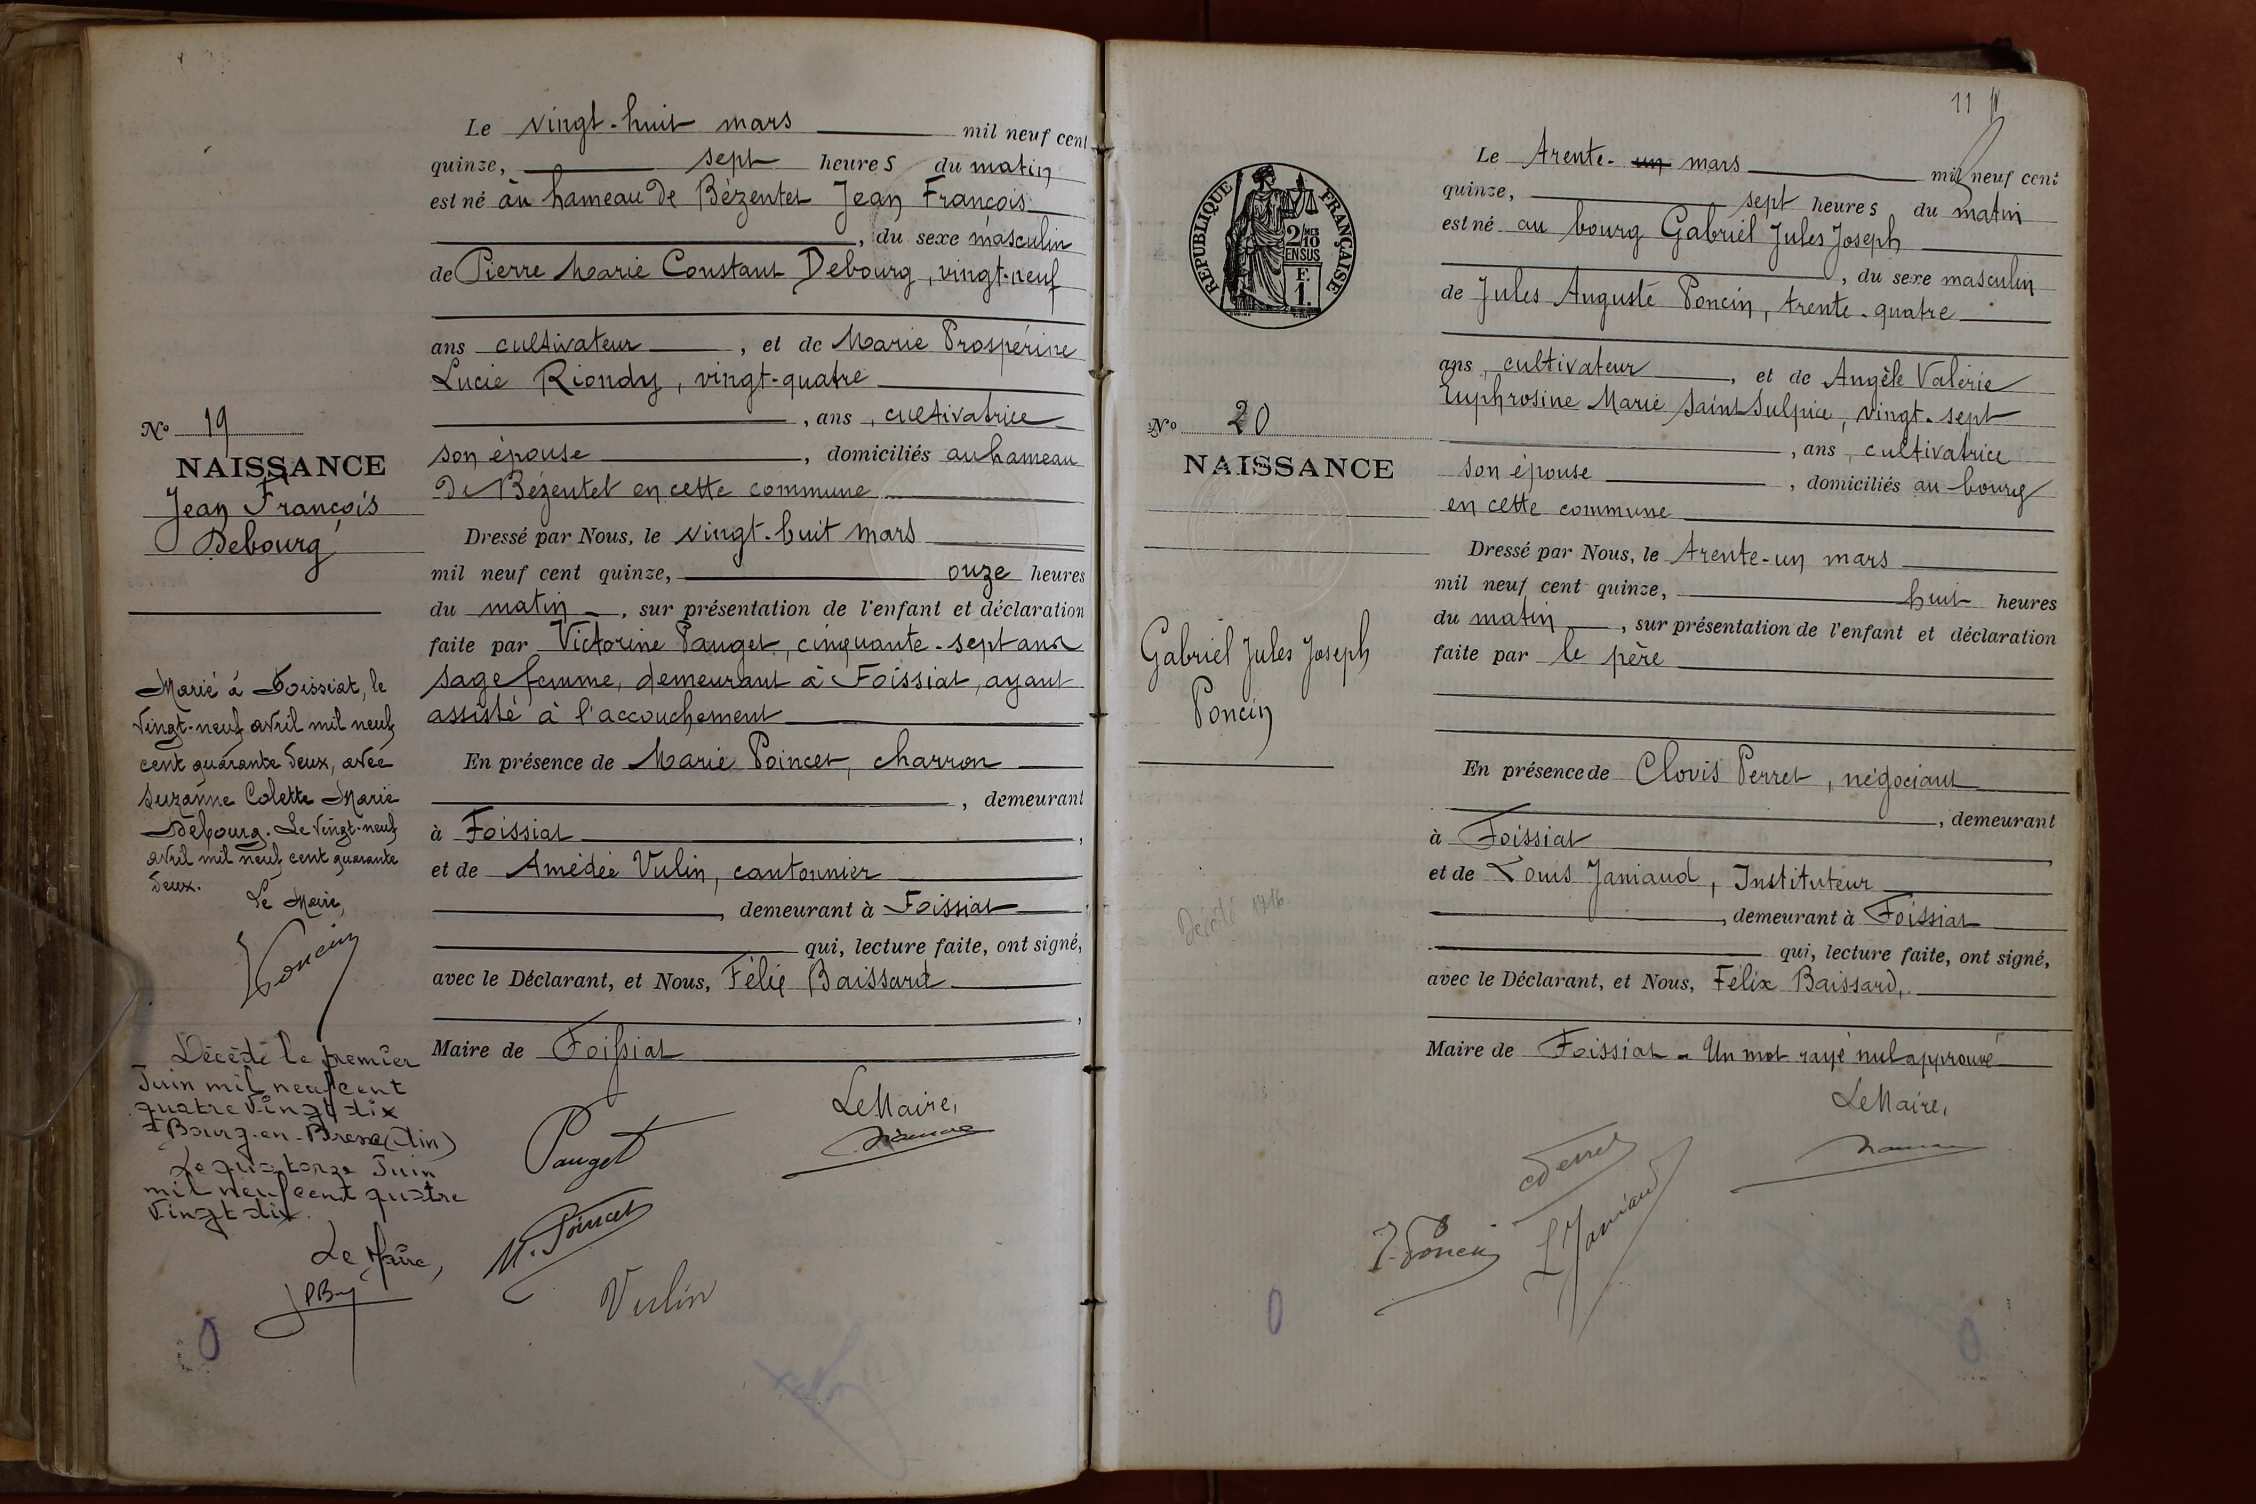 Le vingt-huit mars mil neuf cent
quinze, sept heures du matin
est né au hameau de Bézentet Jean François
, du sexe masculin
de Pierre Marie Constant Debourg, vingt-neuf
ans cultivateur, et de Marie Prospérine
Lucie Riondy, vingt-quatre
, ans, cultivatrice
son épouse, domiciliés au hameau
de Bézentet en cette commune
Dressé par Nous, le vingt-huit mars
mil neuf cent quinze, onze heures
du matin, sur présentation de l'enfant et déclaration
faite par Victorine Pauget, cinquante-sept ans
sage femme, demeurant à Foissiat, ayant
assisté à l'accouchement
En présence de Marie Poincet, charron
, demeurant
à Foissiat,
et de Amédée Vulin, cantonnier
, demeurant à Foissiat
qui, lecture faite, ont signé,
avec le Déclarant, et Nous, Félix Baissard
,
Maire de Foissiat
Le Maire,
Pauget
M. Poincet
Vulin
No 19
NAISSANCE
Jean François
Debourg
Marié à Foissiat, le
vingt-neuf avril mil neuf
cent quarante deux, avec
Suzanne Colette Marie
Debourg. Le vingt-neuf
avril mil neuf cent quarante
deux.
Le Maire,
Poncin
Décédé le premier
Juin mil neuf cent
quatre vingt dix
à Bourg-en-Bresse (Ain)
Le quatorze Juin
mil neuf cent quatre
vingt dix.
Le Maire,
11
Le trente-un mars mil neuf cent
quinze, sept heures du matin
est né au bourg Gabriel Jules Joseph
, du sexe masculin
de Jules Auguste Poncin, trente-quatre
ans, cultivateur, et de Angèle Valérie
Euphrosine Marie Saint Sulpice, vingt-sept
, ans, cultivatrice
son épouse, domiciliés au bourg
en cette commune
Dressé par Nous, le trente-un mars
mil neuf cent quinze, huit heures
du matin, sur présentation de l'enfant et déclaration
faite par le père
En présence de Clovis Perret, négociant
, demeurant
à Foissiat
et de Louis Janiaud, Instituteur
, demeurant à Foissiat
qui, lecture faite, ont signé,
avec le Déclarant, et Nous, Félix Baissard,
Maire de Foissiat - Un mot rayé nul approuvé
Le Maire,
C Perret
J. Poncin
L Janiaud
RÉPUBLIQUE FRANÇAISE
2/10 MES
EN SUS
F.
1.
No 20
NAISSANCE
Gabriel Jules Joseph
Poncin
Décédé 1916